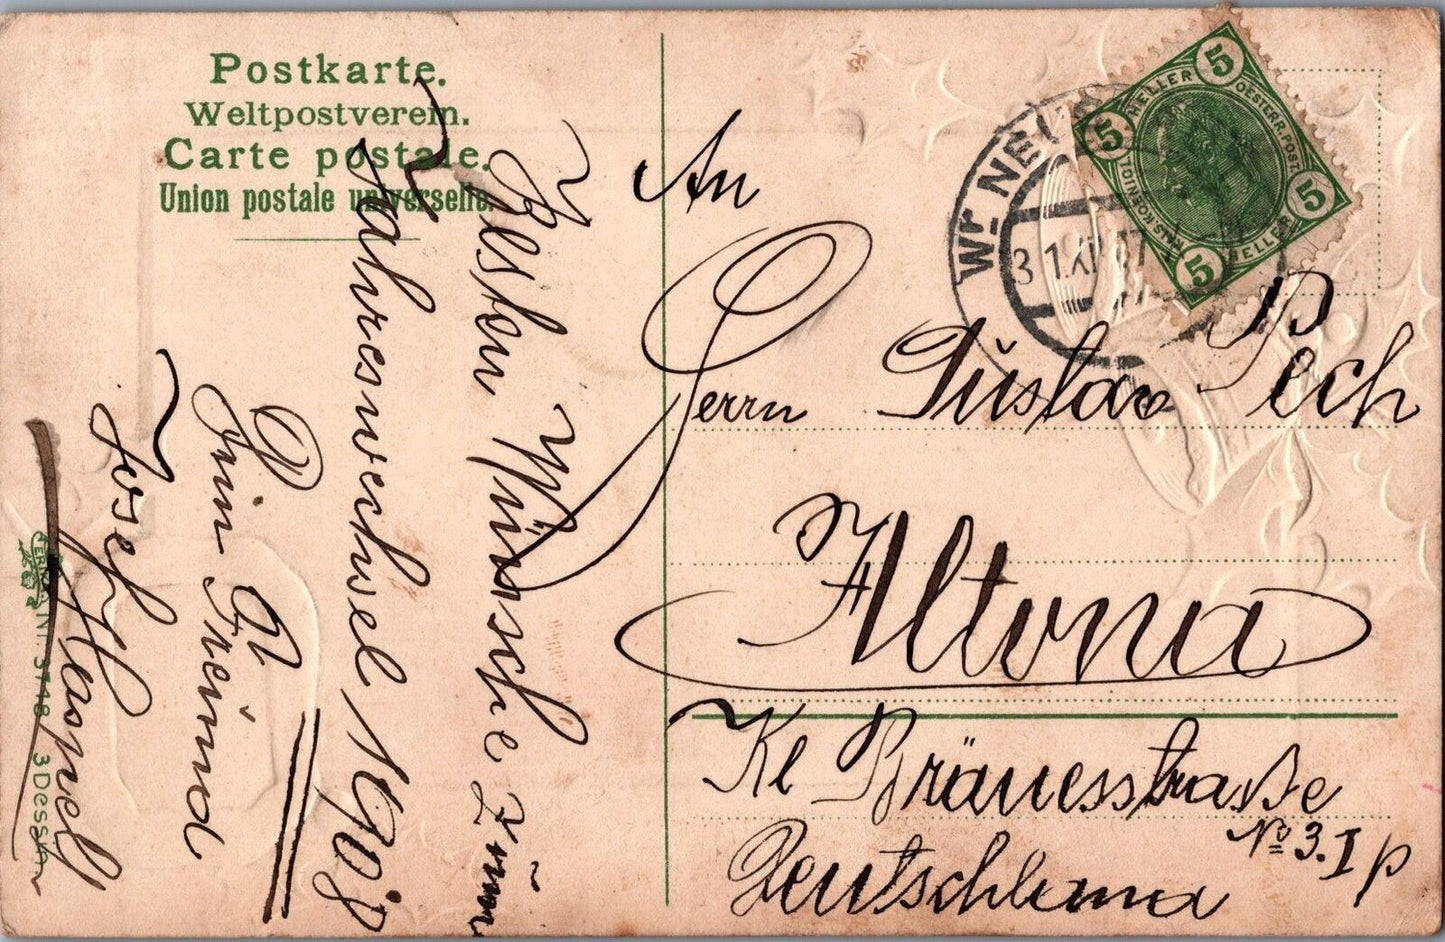 Postkarte.
Weltpostverein.
Carte postale.
Union postale universelle.
Besten Wünsche zum
Jahreswechsel 1908
Dein Freund
Josef Haspel
SER. Nr. 3748 3 Dessın
5 HELLER 5
OESTERR. POST.
5 HELLER 5
Wr. NEU
31 XII 07
An
Herrn Gustav Pech
Altona
Kl Bräuerstraße
No 3. I p
Deutschland